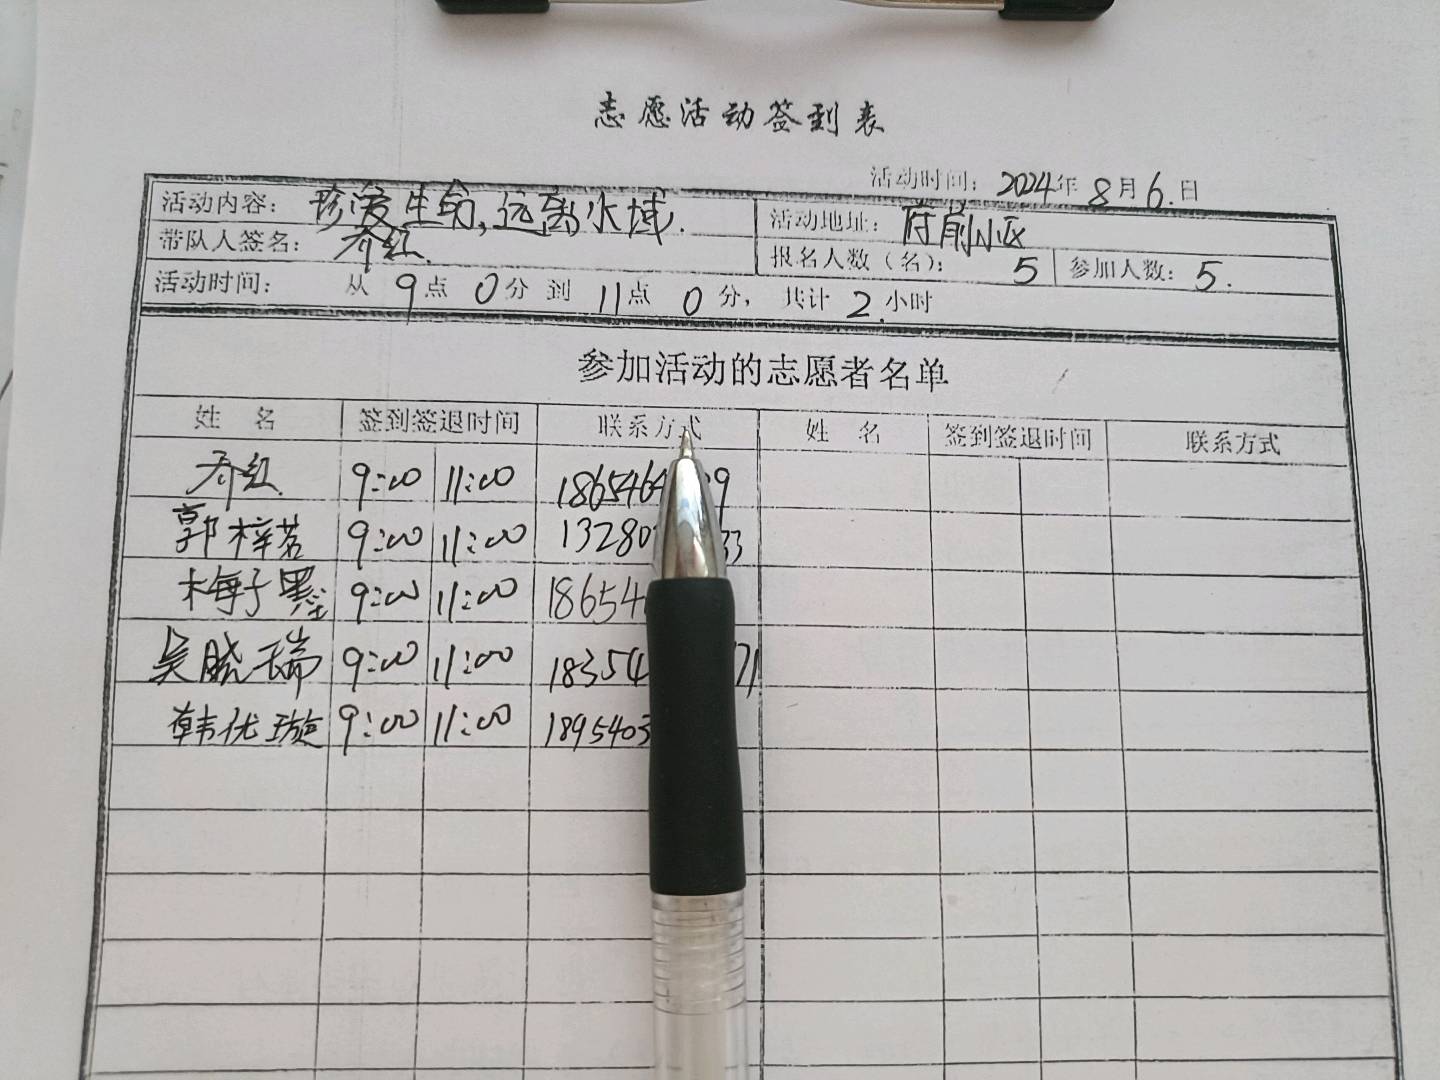 志愿活动签到表
活动时间：2024年8月6.日
活动内容：珍爱生命，远离水域． 活动地址：府前小区
带队人签名：乔红. 报名人数（名）：5 参加人数：5.
活动时间： 从9点0分到11点0分， 共计2.小时
参加活动的志愿者名单
姓 名 签到签退时间 联系方式 姓 名 签到签退时间 联系方式
乔红. 9:00 11:00 1865464 9
郭梓茗 9:00 11:00 13280 33
梅子墨 9:00 11:00 18654
吴晓瑞 9:00 11:00 18354 71
韩优璇 9:00 11:00 1895403